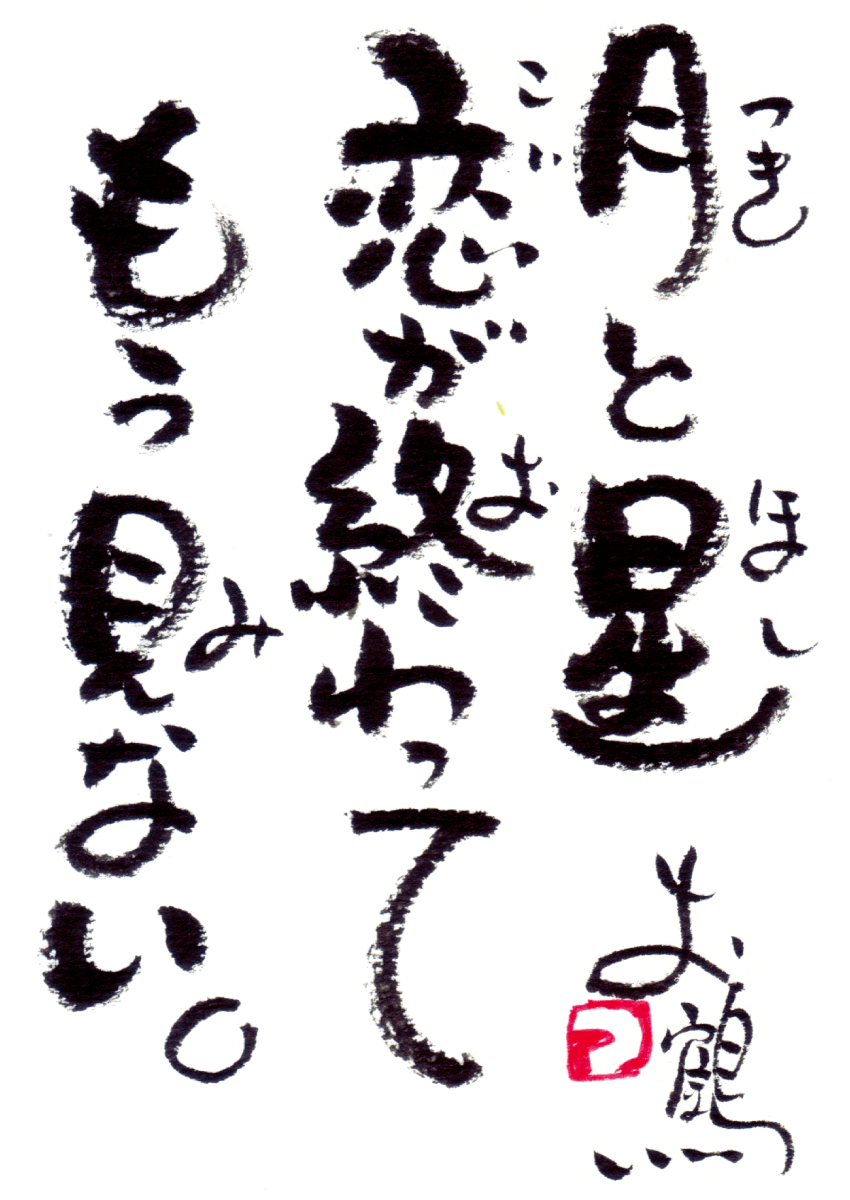 つき
月と星
ほし
こい
恋が終わって
お
もう見ない。
み
お鶴
つ